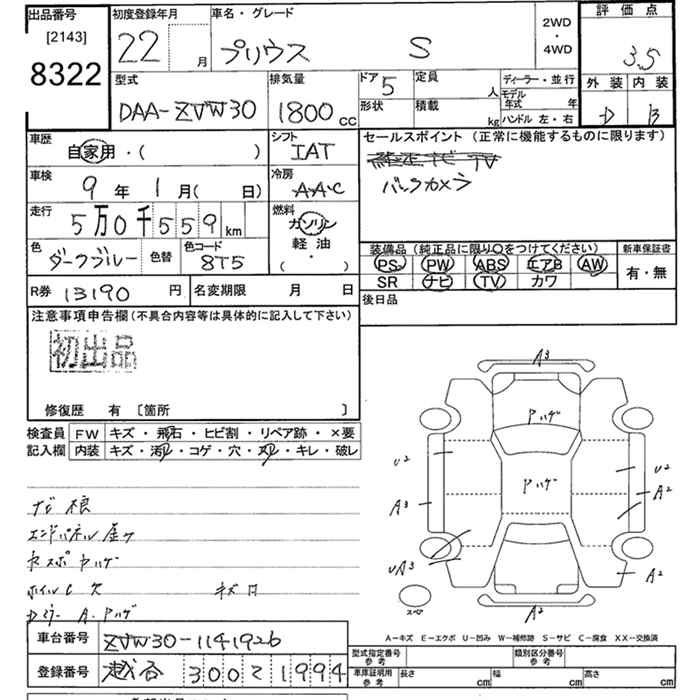 出品番号
[2143]
8322
初度登録年月
22 月
車名・グレード
プリウス S
2WD
・
4WD
評価点
3.5
外装 内装
D B
型式
DAA-ZVW30
排気量
1800 cc
ドア 5
形状
定員 人
積載 kg
ディーラー・並行
モデル年式 年
ハンドル 左・右
車歴
自家用・( )
シフト
IAT
車検
9年 1月( 日)
冷房
AAC
走行
5万0千559 km
燃料
ガソリン
軽油
( ・ )
色
ダークブルー
色替
色コード
8T5
R券 13190 円
名変期限 月 日
セールスポイント(正常に機能するものに限ります)
純正ナビ TV
バックカメラ
装備品(純正品に限り○をつけてください)
PS PW ABS エアB AW
SR ナビ TV カワ
新車保証書
有・無
後日品
注意事項申告欄(不具合内容等は具体的に記入して下さい)
初出品
修復歴 有 [箇所 ]
検査員
記入欄
FW キズ・飛石・ヒビ割・リペア跡・×要
内装 キズ・汚レ・コゲ・穴・スレ・キレ・破レ
エンドパネル
ホイルC欠 キズ
Dミラー A・Pハゲ
A3
Pハゲ
U2
U2
A2
Pハゲ
A3
UA3
A2
スペア
A2
A-キズ E-エクボ U-凹み W-補修跡 S-サビ C-腐食 XX-交換済
車台番号 ZVW30-1141926
登録番号 越谷 300 ミ 1994
型式指定番号
参考
類別区分番号
参考
車庫証明用
参考
長さ cm
幅 cm
高さ cm